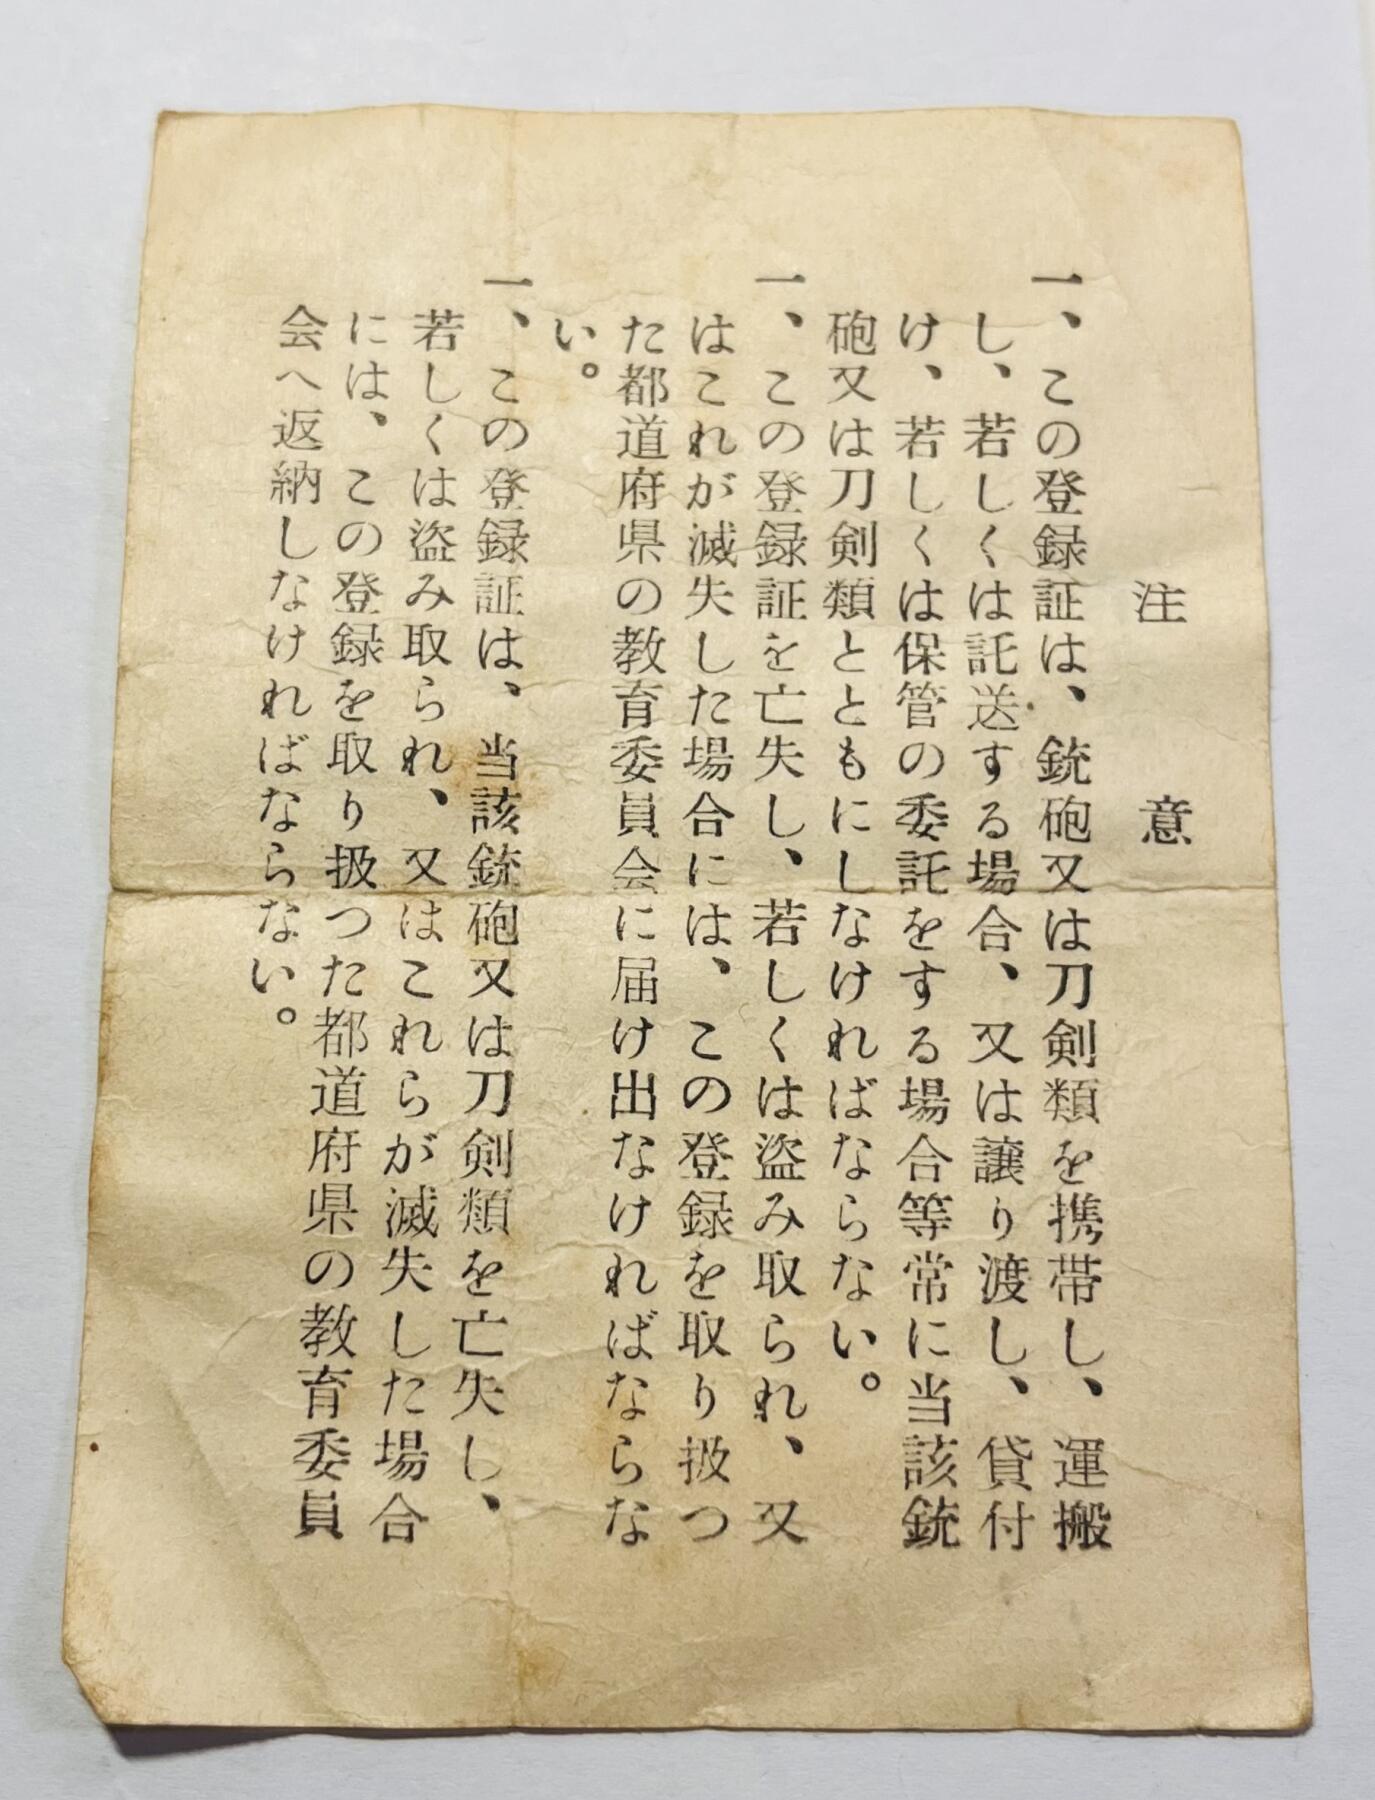 注意
一、この登録証は、銃砲又は刀剣類を携帯し、運搬
し、若しくは託送する場合、又は譲り渡し、貸付
け、若しくは保管の委託をする場合等常に当該銃
砲又は刀剣類とともにしなければならない。
一、この登録証を亡失し、若しくは盗み取られ、又
はこれが滅失した場合には、この登録を取り扱つ
た都道府県の教育委員会に届け出なければならな
い。
一、この登録証は、当該銃砲又は刀剣類を亡失し、
若しくは盗み取られ、又はこれらが滅失した場合
には、この登録を取り扱つた都道府県の教育委員
会へ返納しなければならない。